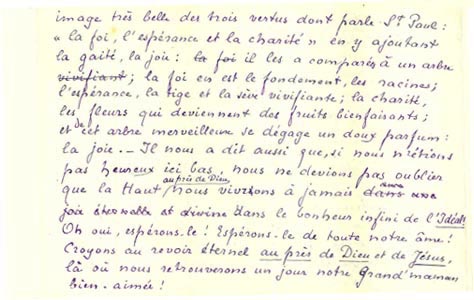 image très belle des trois vertus dont parle St Paul:
« la foi, l'espérance et la charité » en y ajoutant
la gaité, la joie: la foi il les a comparés à un arbre
vivifiant; la foi en est le fondement, les racines;
l'espérance, la tige et la sève vivifiante; la charité,
les fleurs qui deviennent des fruits bienfaisants;
et de cet arbre merveilleux se dégage un doux parfum:
la joie. – Il nous a dit aussi que, si nous n'étions
pas heureux ici bas, nous ne devions pas oublier
auprès de Dieu
que là Haut, nous vivrons à jamais dans une
joie éternelle et divine dans le bonheur infini de l'Idéal!
Oh oui, espérons-le! Espérons-le de toute notre âme!
Croyons au revoir éternel au près de Dieu et de Jésus,
là où nous retrouverons un jour notre Grand'maman
bien-aimée!